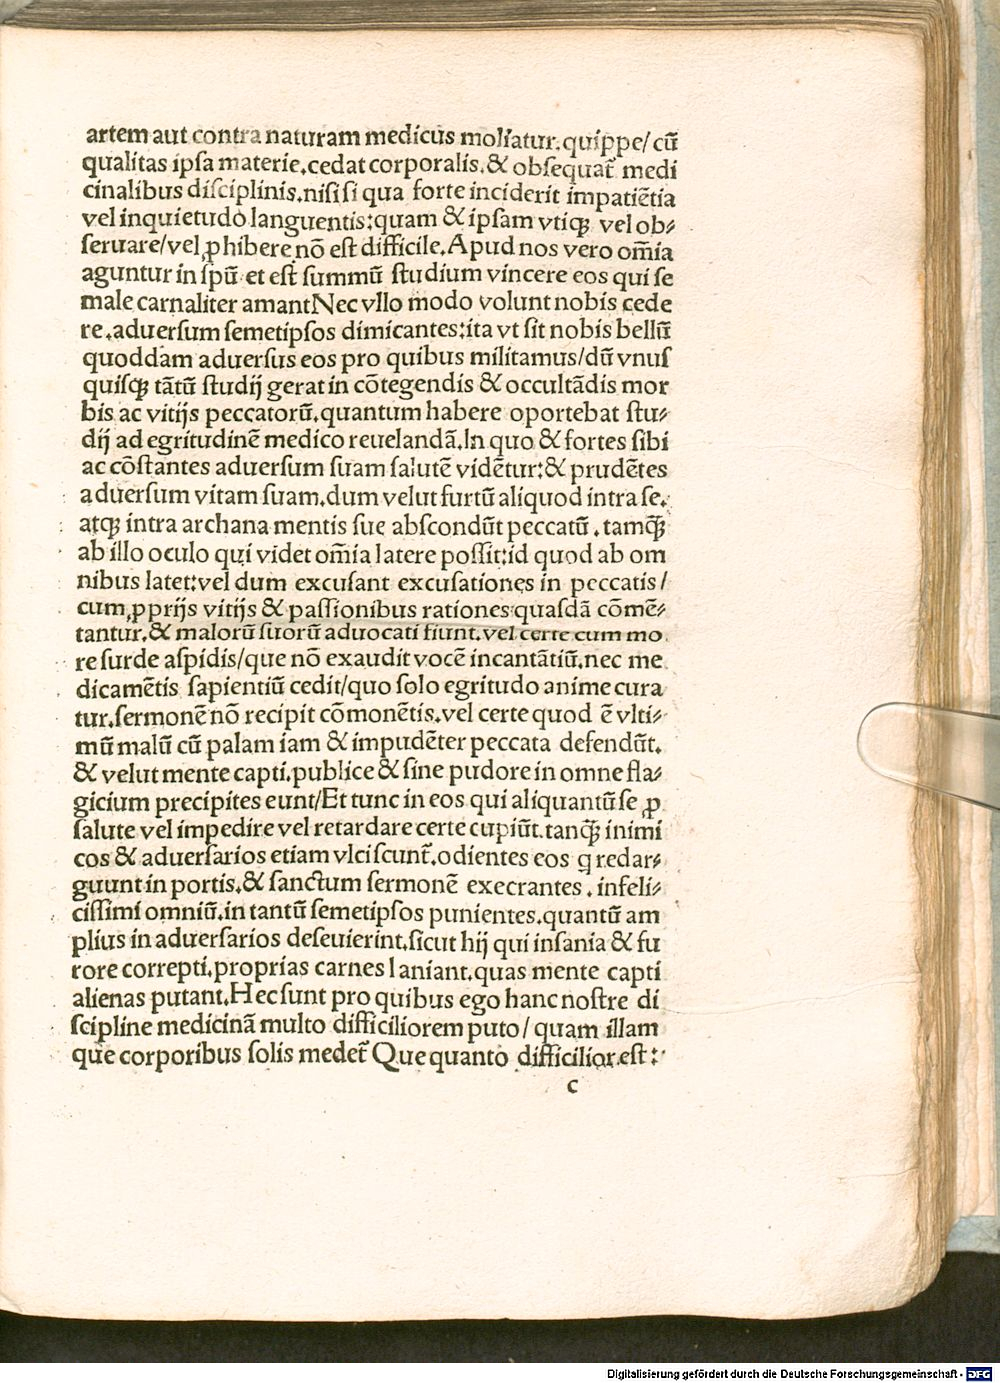 artem aut contra naturam medicus moliatur. quippe/ cū
qualitas ipsa materie. cedat corporalis. & obsequat᷑ medi
cinalibus disciplinis. nisi si qua forte inciderit impatiētia
vel inquietudo languentis: quam & ipsam vtiqꝫ vel ob⸗
seruare/ vel ꝓhibere nō est difficile. Apud nos vero om̄ia
aguntur in spū et est summū studium vincere eos qui se
male carnaliter amant Nec vllo modo volunt nobis cede
re. aduersum semetipsos dimicantes: ita vt sit nobis bellū
quoddam aduersus eos pro quibus militamus/ dū vnus
quisqꝫ tātū studij gerat in cōtegendis & occultādis mor
bis ac vitijs peccatorū. quantum habere oportebat stu⸗
dij ad egritudinē medico reuelandā. In quo & fortes sibi
ac cōstantes aduersum suam salutē vidētur: & prudētes
aduersum vitam suam. dum velut furtū aliquod intra se.
atqꝫ intra archana mentis sue abscondūt peccatū. tamqꝫ̄
ab illo oculo qui videt om̄ia latere possit: id quod ab om
nibus latet: vel dum excusant excusationes in peccatis/
cum ꝓprijs vitijs & passionibus rationes quasdā cōmē⸗
tantur. & malorū suorū aduocati fiunt. vel certe cum mo
re surde aspidis/ que nō exaudit vocē incantātiū. nec me
dicamētis sapientiū cedit/ quo solo egritudo anime cura
tur. sermonē nō recipit cōmonētis. vel certe quod ē vlti⸗
mū malū cū palam iam & impudēter peccata defendūt.
& velut mente capti. publice & sine pudore in omne fla⸗
gicium precipites eunt/ Et tunc in eos qui aliquantū se ꝓ
salute vel impedire vel retardare certe cupiūt. tanqꝫ̄ inimi
cos & aduersarios etiam vlciscunt᷑. odientes eos q̣ redar⸗
guunt in portis. & sanctum sermonē execrantes. infeli⸗
cissimi omniū. in tantū semetipsos punientes. quantū am
plius in aduersarios deseuierint. sicut hij qui insania & fu
rore correpti. proprias carnes laniant. quas mente capti
alienas putant. Hec sunt pro quibus ego hanc nostre di
scipline medicinā multo difficiliorem puto/ quam illam
que corporibus solis medet᷑ Que quanto difficilior est:
c
Digitalisierung gefördert durch die Deutsche Forschungsgemeinschaft - DFG